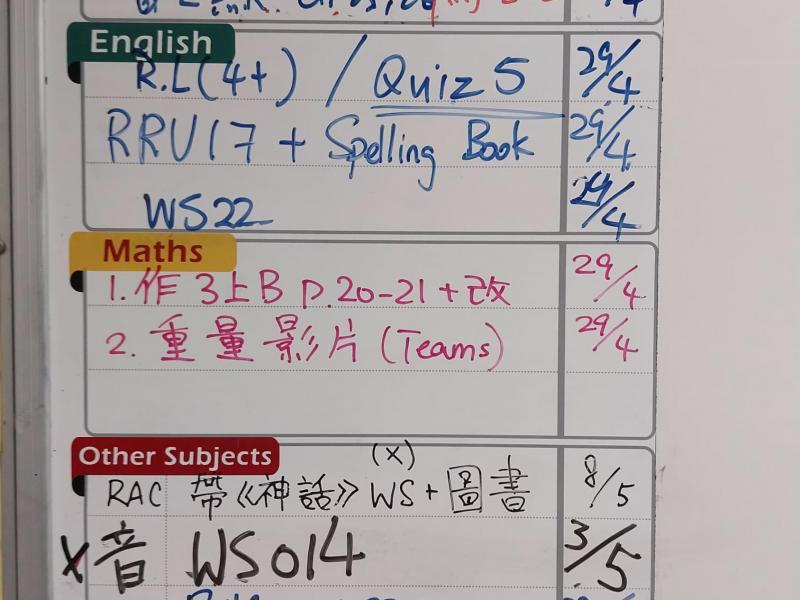 English
R.L(4+) / Quiz 5 29/4
RRU17 + Spelling Book 29/4
WS22 29/4
Maths
1. 作 3上B p.20-21 + 改 29/4
2. 重量影片 (Teams) 29/4
Other Subjects
(x)
RAC 帶《神話》WS + 圖書 8/5
x 音 WS014 3/5